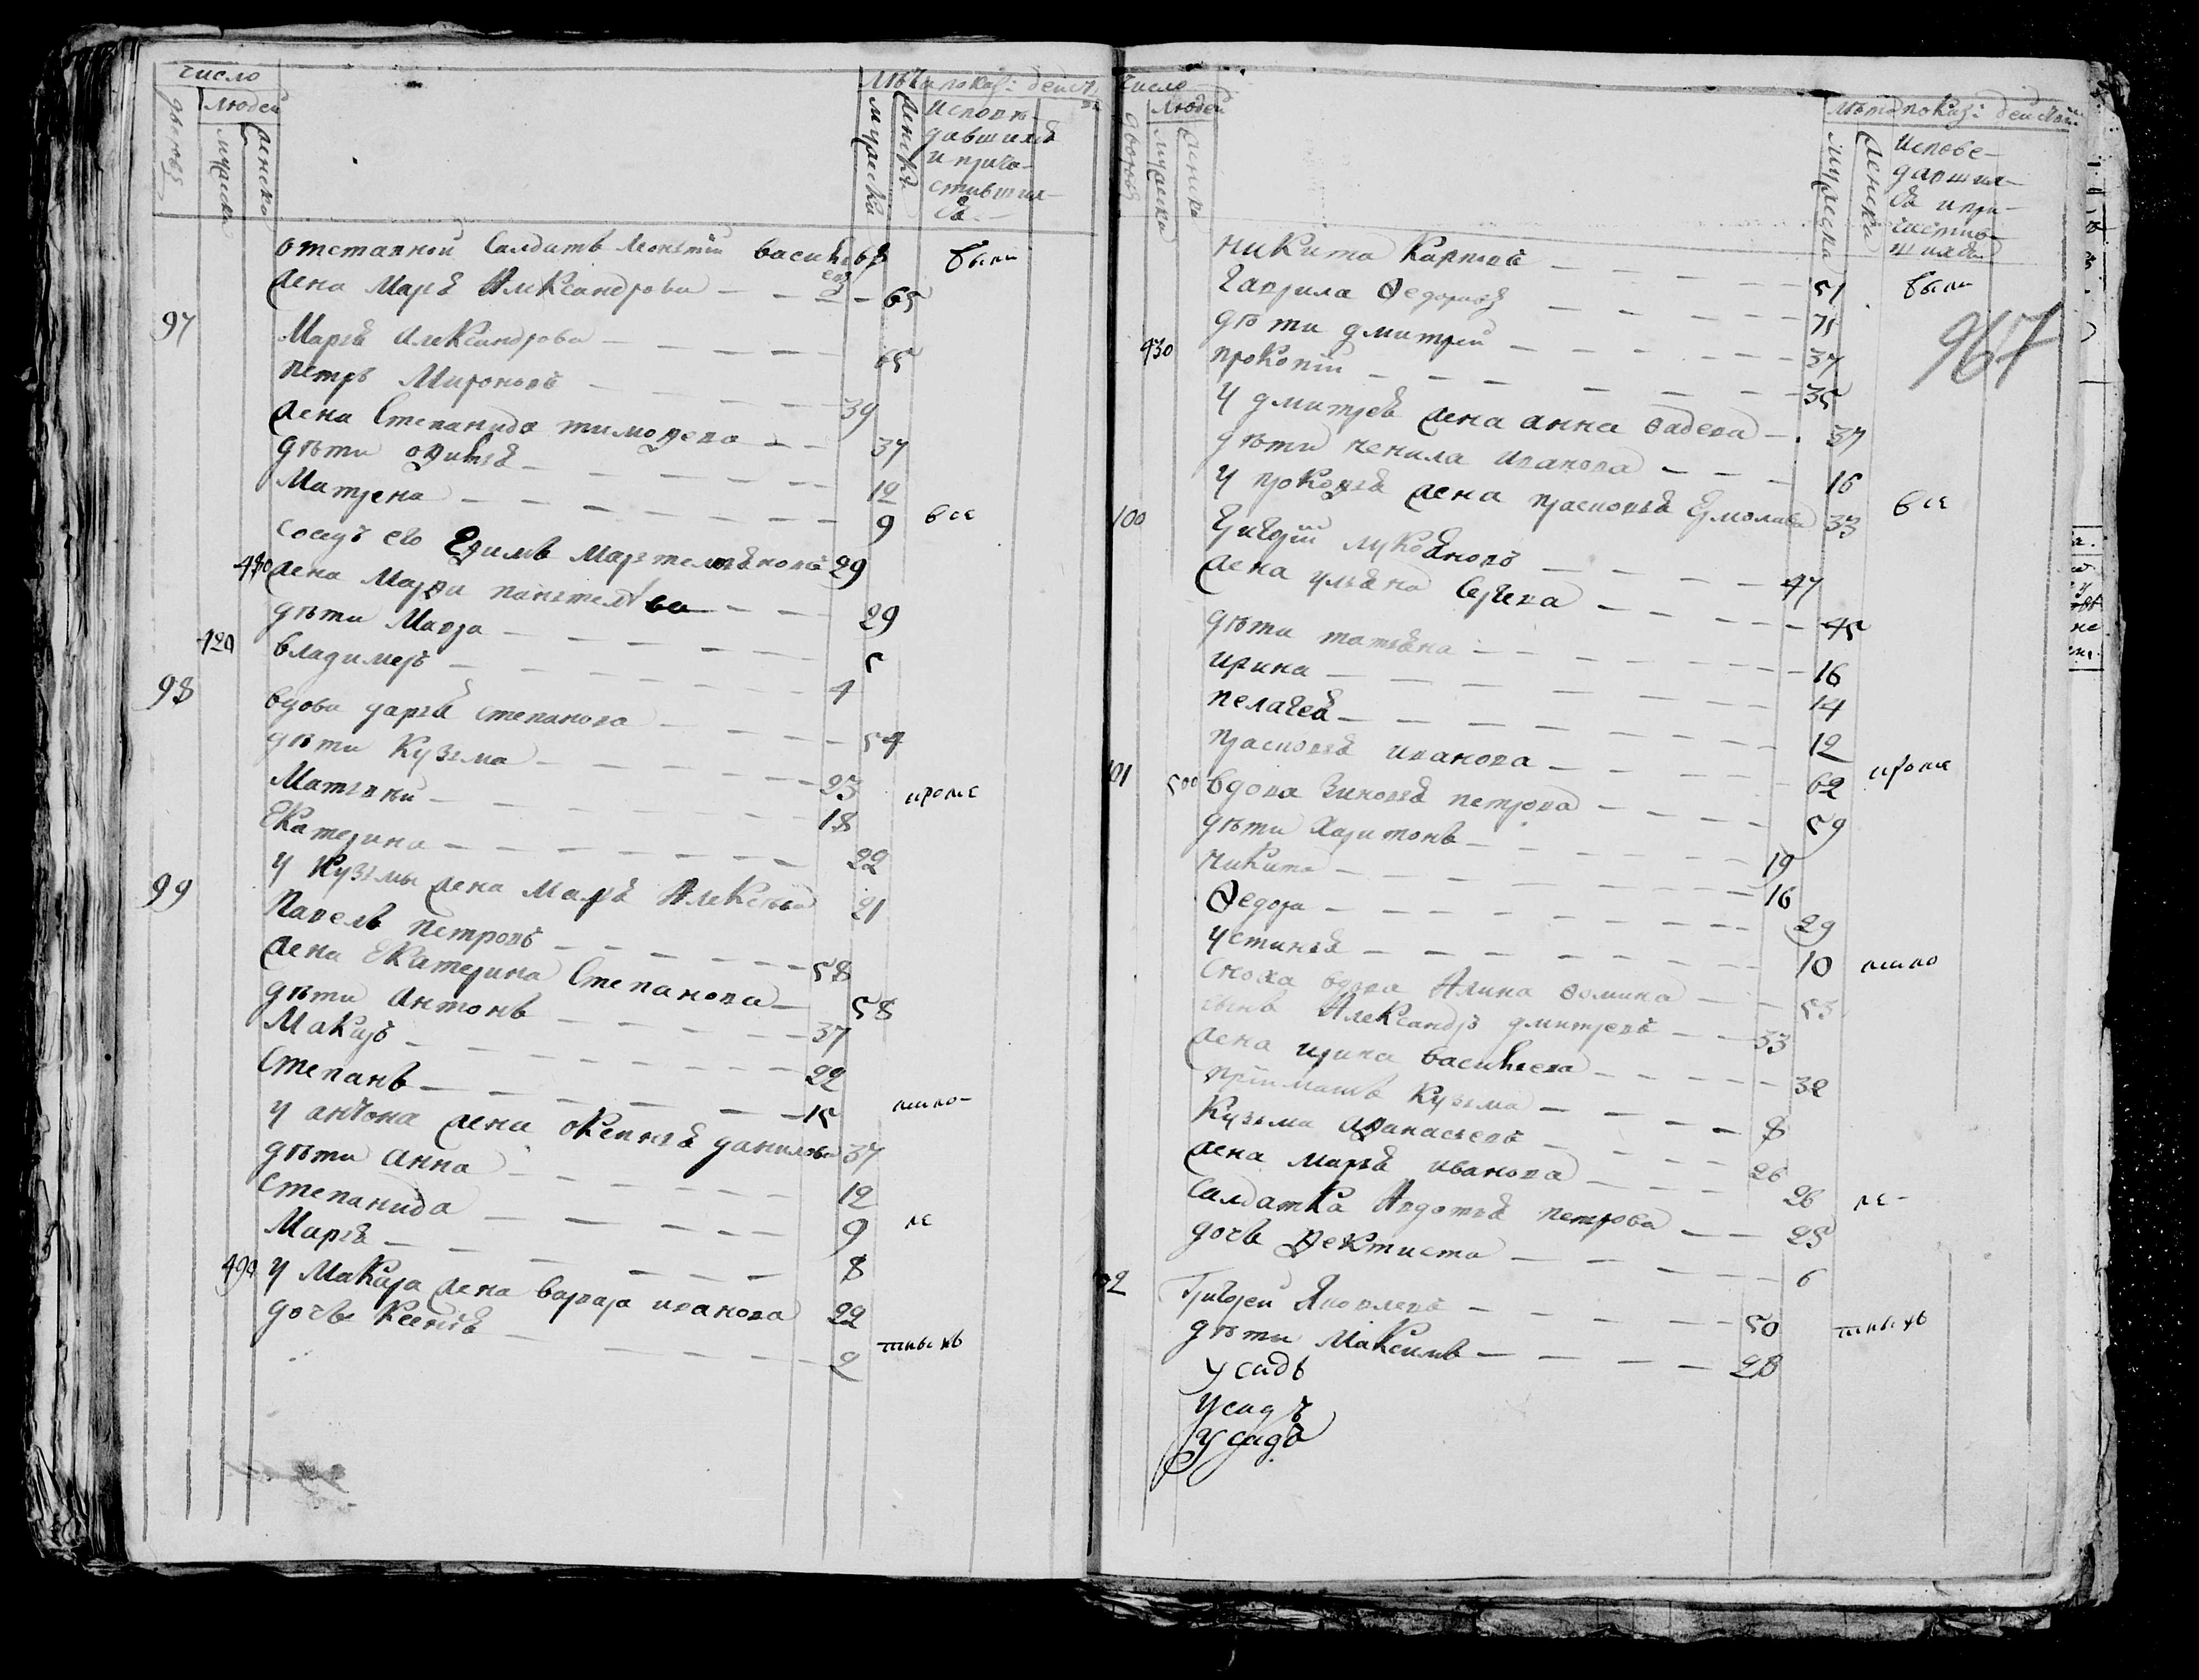 число
людей
дворовъ
мужеска
женска
лѣта показ: дейст
мужеска
женска
Исповѣ-
давшихся
и прича-
стивших-
ся
отставной Салдатъ Леонтiй василье
были
жена Марья Александрова 65
97
Марья Александрова 65
Петръ Мироновъ 39
жена Степанида тимофеева 37
дѣти офимья 12
Матрена 9
все
соседъ его Ефимъ 29
жена Марфа 29
дѣти Мавра 5
владимеръ 4
98
вдова дарья степанова 54
дѣти Кузьма 23
Матвѣй 18
кроме
Екатерина 22
у Кузьмы жена Марья Алексеева 21
99
Павелъ Петровъ 58
жена Екатерина Степанова 58
дѣти Антонъ 37
Макаръ 22
Степанъ 15
у антона жена оксинья данилова 37
дѣти Анна 12
Степанида 9
Марья 8
у Макара жена варвара иванова 22
дочь Ксенья 2
число
людей
дворовъ
мужеска
женска
лѣта показ: дейст
мужеска
женска
Испове-
давших-
ся и при-
частив-
шихся
никита Карповъ 51
были
гаврила Федоровъ 71
967
дѣти дмитрей 37
430 прокопiй 35
у дмитрея жена анна фадеева 37
дѣти ненила иванова 16
у прокопья жена прасковья Ермолаева 33
все
100 Григорiй лукьяновъ 47
жена ульяна Сергеева 45
дѣти татьяна 16
ирина 14
пелагея 12
прасковья иванова 62
кроме
101 500 вдова Зиновья петрова 59
дѣти Харитонъ 19
никита 16
Федора 29
устинья 10
сноха вдова Алина фомина 53
сынъ Александръ дмитреевъ 33
жена ирина васильева 32
прiиматъ Кузьма 8
Кузьма афанасьевъ 26
жена марья иванова 26
салдатка Авдотья петрова 25
дочь фектиста 6
Григорей Яковлевъ 50
дѣти Максимъ 28
усадъ
усадъ
усадъ